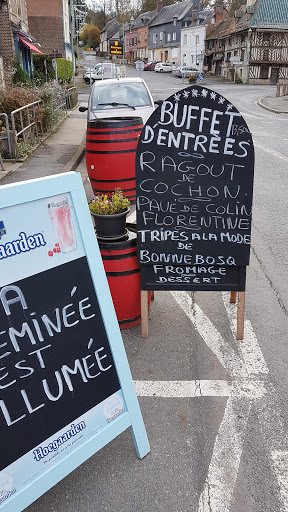 BUFFET 13,50
D'ENTRÈES
RAGOUT
DE
COCHON.
PAVÉ DE COLIN
FLORENTINE
TRIPES A LA MODE
DE
BONNEBOSQ
FROMAGE
DESSERT
Hoegaarden
A
EMINÉE
EST
LLUMÉE
Hoegaarden